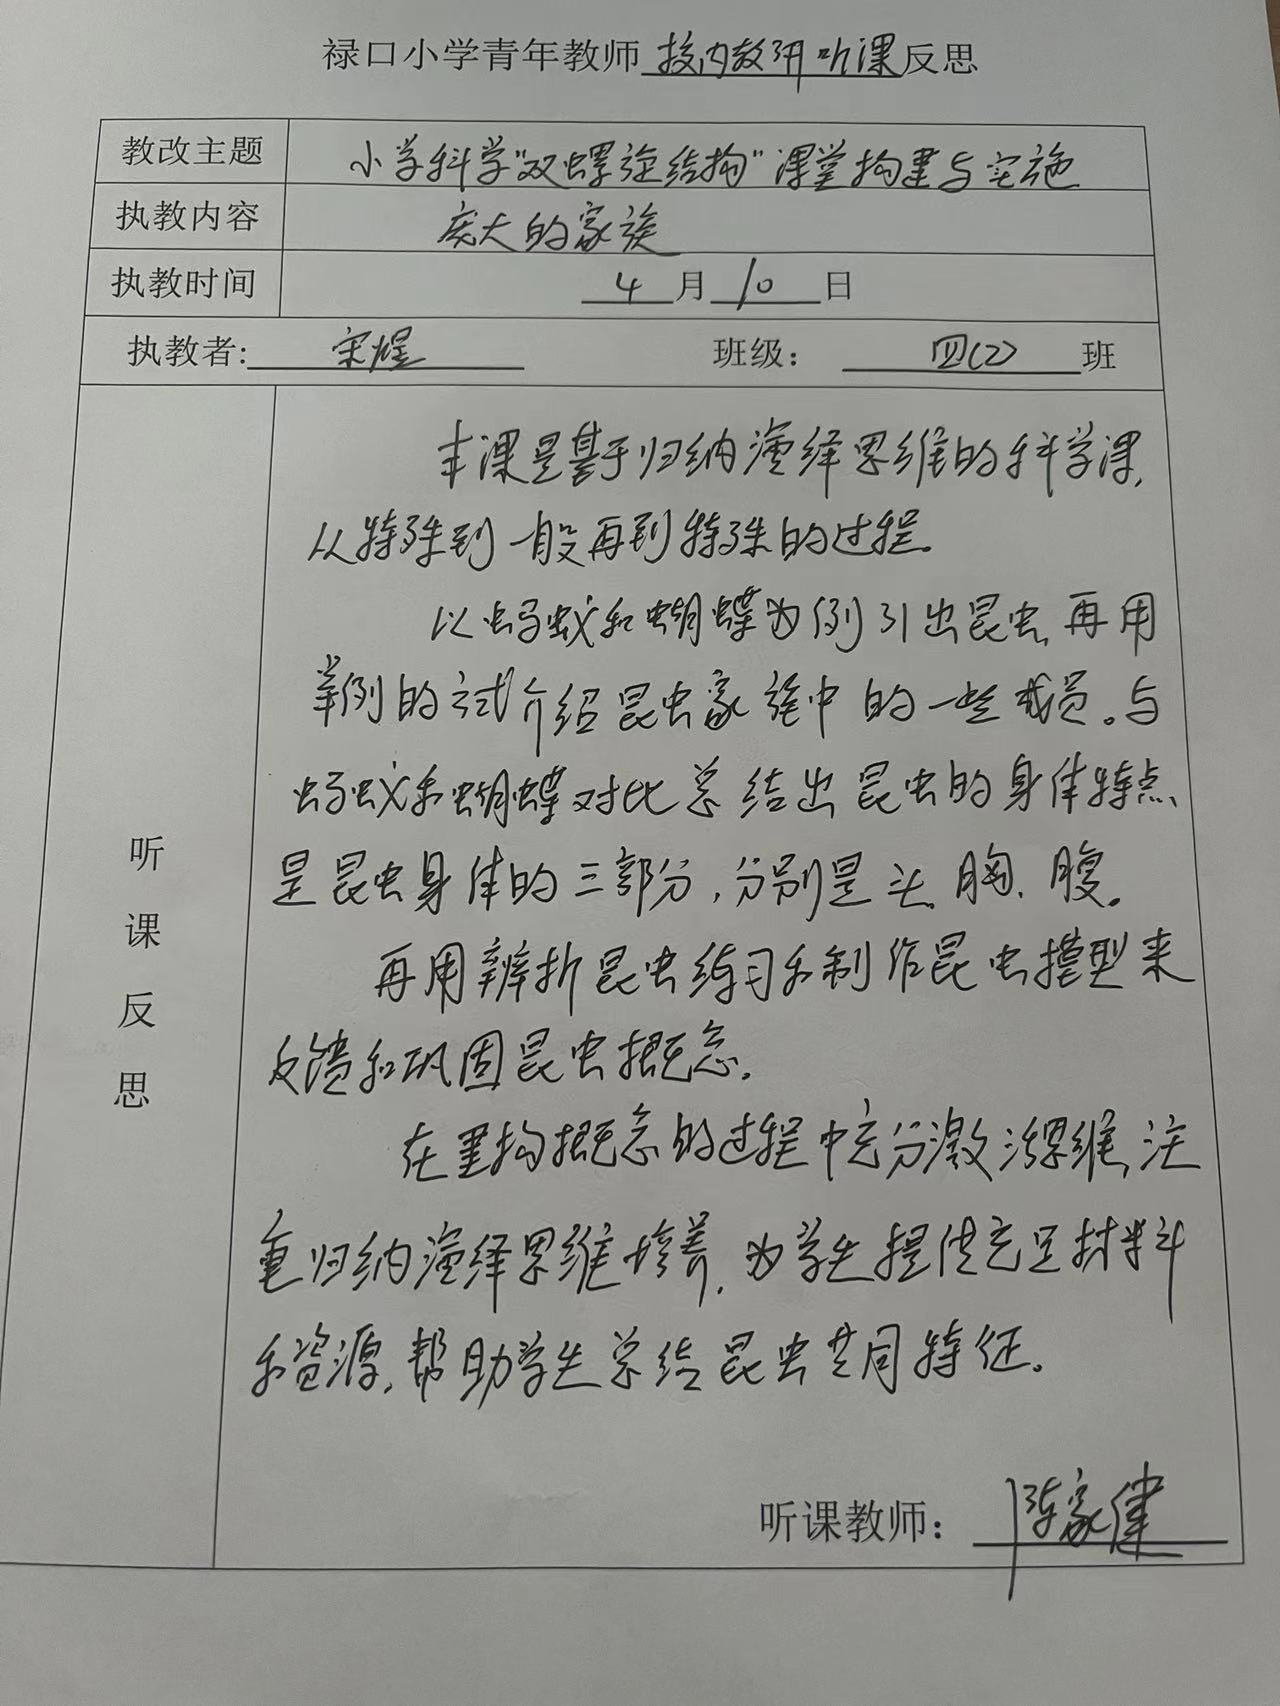 禄口小学青年教师校内教研听课反思
教改主题 小学科学“双螺旋结构”课堂构建与实施
执教内容 庞大的家族
执教时间 4月10日
执教者:宋煜 班级:四(2)班
本课是基于归纳演绎思维的科学课,
从特殊到一般再到特殊的过程。
以蚂蚁和蝴蝶为例引出昆虫,再用
举例的方式介绍昆虫家族中的一些成员。与
蚂蚁和蝴蝶对比总结出昆虫的身体特点
是昆虫身体的三部分,分别是头、胸、腹。
再用辨析昆虫练习和制作昆虫模型来
反馈和巩固昆虫概念。
在重构概念的过程中充分激活思维,注
重归纳演绎思维培养,为学生提供充足材料
和资源,帮助学生总结昆虫共同特征。
听课反思
听课教师:陈家健